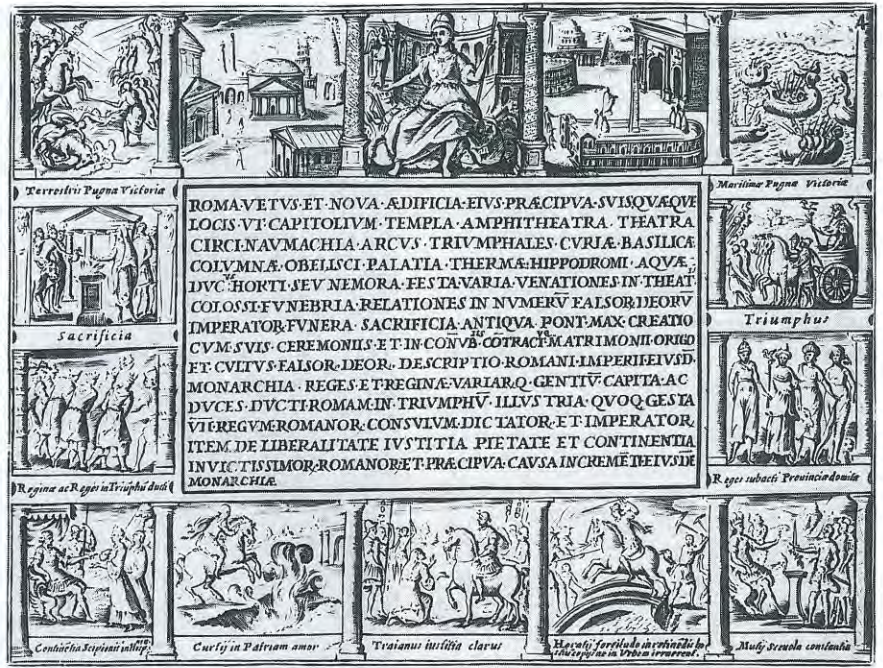 4
Terrestris Pugnæ Victoriæ
Maritimæ Pugnæ Victoriæ
ROMA·VETVS·ET·NOVA·ÆDIFICIA·EIVS·PRÆCIPVA·SVIS QVÆQVE
LOCIS·VT·CAPITOLIVM·TEMPLA·AMPHITHEATRA·THEATRA
CIRCI·NAVMACHIA·ARCVS·TRIVMPHALES·CVRIÆ·BASILICÆ
COLVMNÆ·OBELISCI·PALATIA·THERMÆ·HIPPODROMI·AQVÆ
DVC HORTI·SEV NEMORA·FESTA·VARIA·VENATIONES·IN THEAT
COLOSSI·FVNEBRIA·RELATIONES IN NVMERŪ FALSOR·DEORV
IMPERATOR·FVNERA·SACRIFICIA·ANTIQVA·PONT·MAX·CREATIO
CVM·SVIS·CEREMONIIS·ET·IN MATRIMONII·ORIGO
ET·CVLTVS·FALSOR·DEOR·DESCRIPTIO·ROMANI·IMPERII·EIVSD
MONARCHIA·REGES·ET·REGINÆ·VARIAR·Q·GENTIŪ·CAPITA·AC
DVCES·DVCTI·ROMAM·IN·TRIVMPHŪ·ILLVSTRIA·QVOQ·GESTA
VII·REGVM·ROMANOR·CONSVLVM·DICTATOR·ET·IMPERATOR
ITEM·DE LIBERALITATE IVSTITIA PIETATE ET CONTINENTIA
INVICTISSIMOR·ROMANOR·ET·PRÆCIPVA·CAVSA INCREMĒTI·EIVSDĒ
MONARCHIÆ
Sacrificia
Triumphus
Reginæ ac Reges in Triūphū ducti
Reges subacti Provinciæ domitæ
Continētia Scipionis
Curtij in Patriam amor
Traianus iustitia clarus
Horatij fortitudo in retinēdis
copijs ne in Urbem irruerent
Mutij Scevolæ constantia